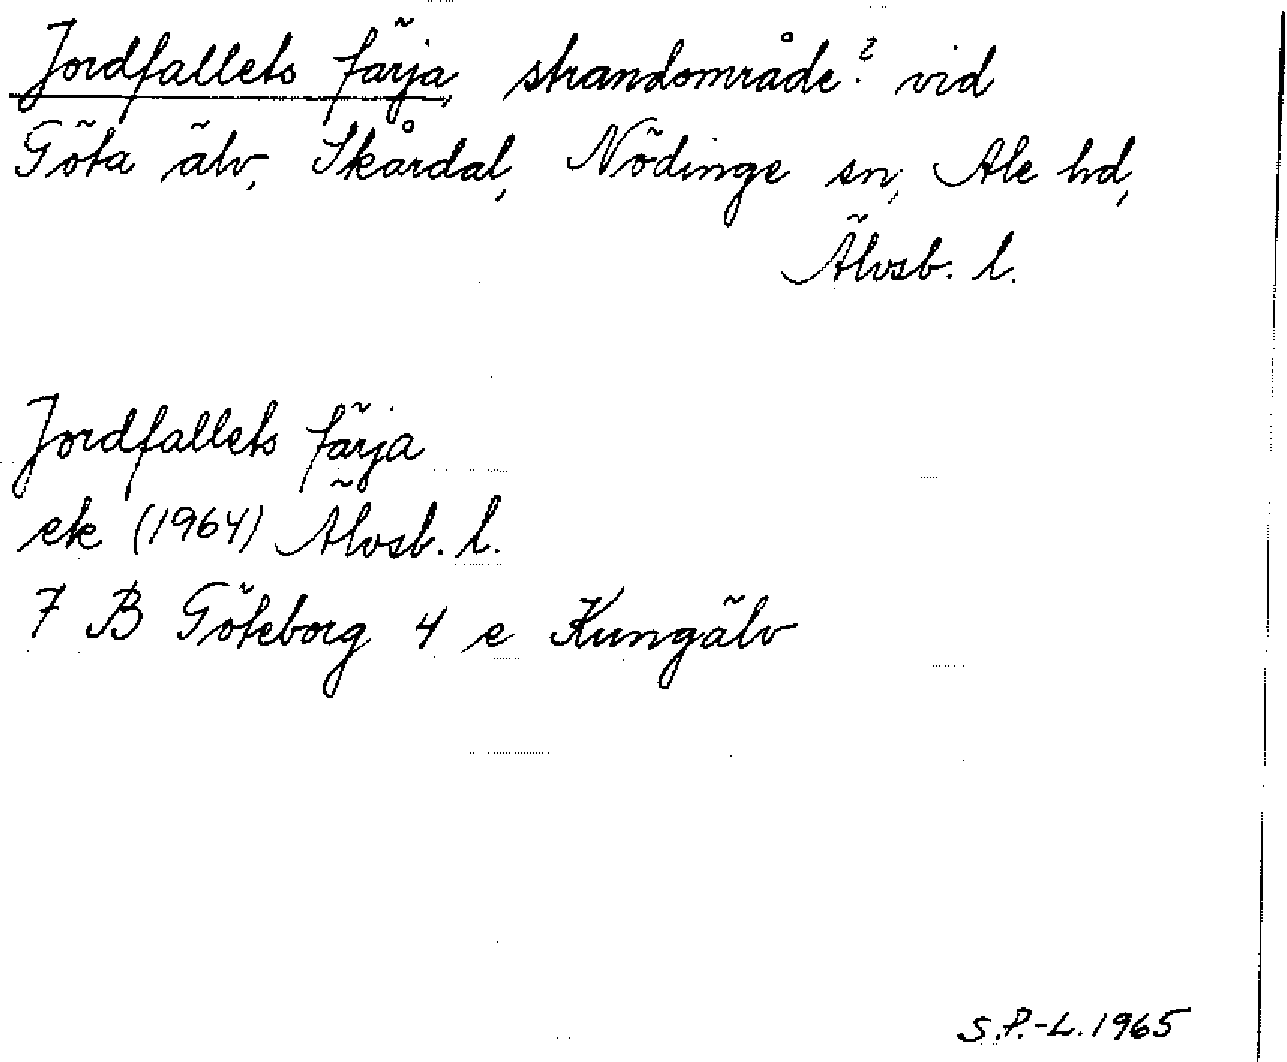 Jordfallets färja, strandområde? vid
Göta älv, Skårdal, Nödinge sn, Ale hd,
Älvsb. l.
Jordfallets färja
ek (1964) Älvsb. l.
7 B Göteborg 4 e Kungälv
S.P.-L. 1965